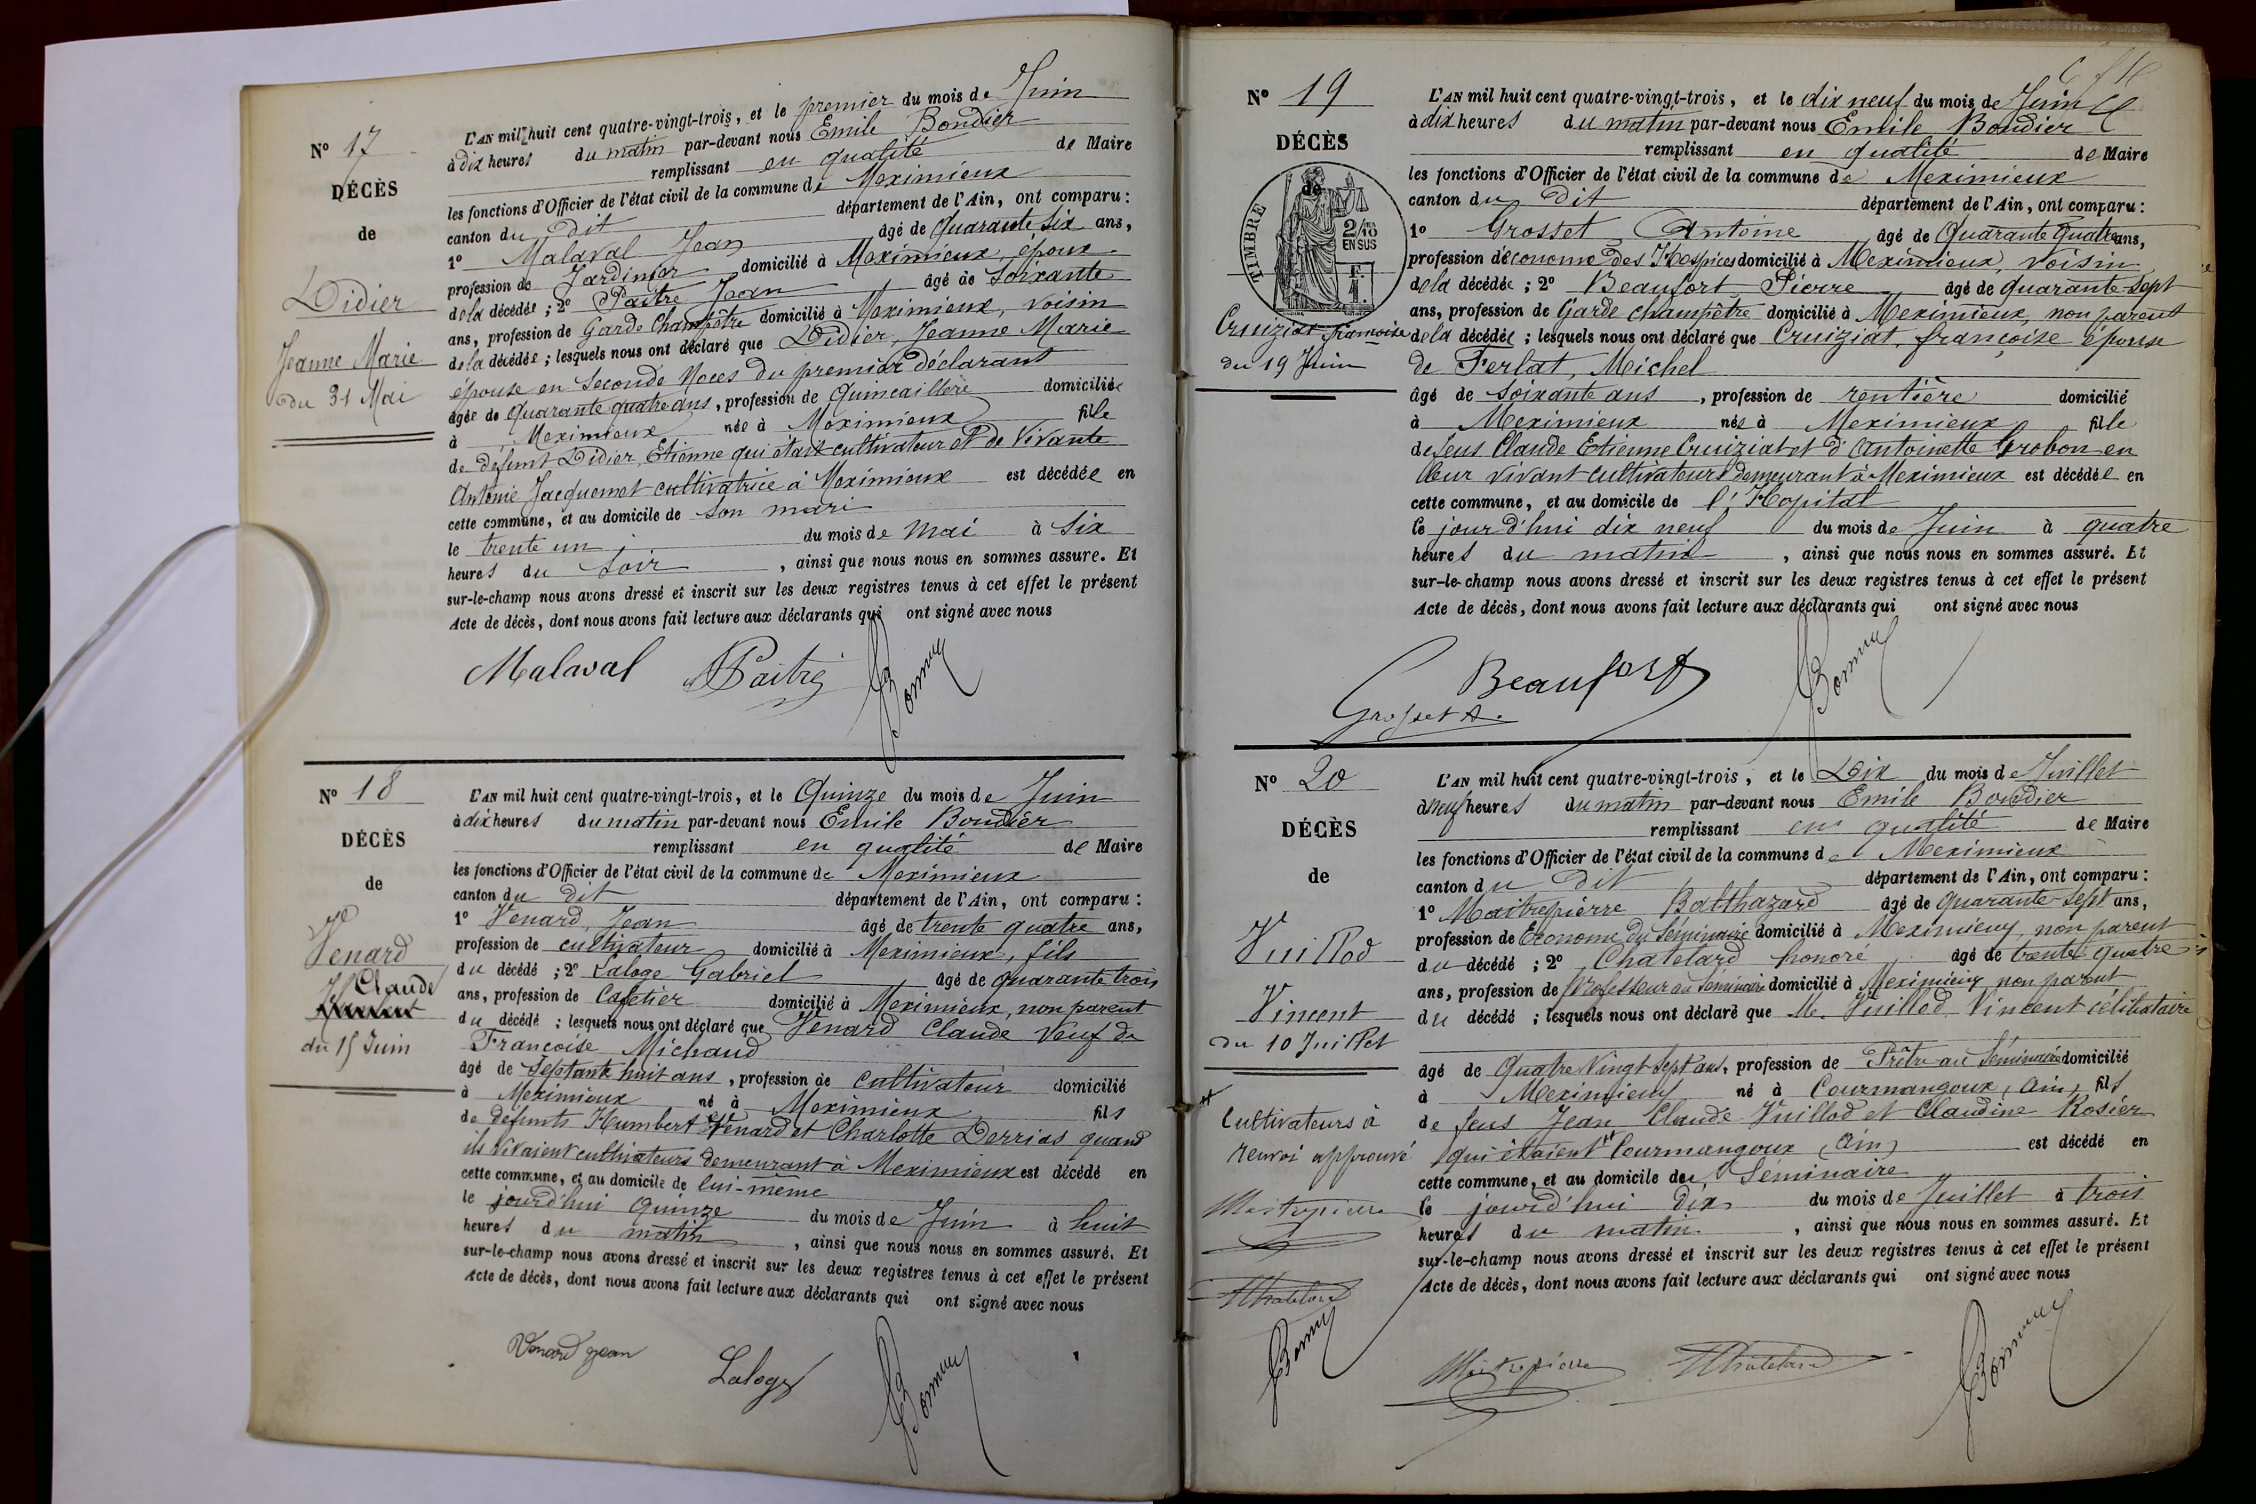 N° 17
DÉCÈS
de
Didier
Jeanne Marie
du 31 Mai
L'AN mil huit cent quatre-vingt-trois, et le premier du mois de Juin
à dix heures du matin par-devant nous Emile Boudier
remplissant en qualité de Maire
les fonctions d'Officier de l'état civil de la commune de Meximieux
canton du dit département de l'Ain, ont comparu:
1° Malaval Jean âgé de Quarante six ans,
profession de Jardinier domicilié à Meximieux, époux
de la décédée; 2° Paitre Jean âgé de Soixante
ans, profession de Garde Champêtre domicilié à Meximieux, voisin
de la décédée; lesquels nous ont déclaré que Didier, Jeanne Marie
épouse en Seconde Noces du premier déclarant
âgée de quarante quatre ans, profession de Quincaillère domiciliée
à Meximieux née à Meximieux fille
de défunt Didier, Etienne qui était cultivateur et de Vivante
Antoinie Jacquemet cultivatrice à Meximieux est décédée en
cette commune, et au domicile de son mari
le trente un du mois de Mai à Six
heures du Soir, ainsi que nous nous en sommes assuré. Et
sur-le-champ nous avons dressé et inscrit sur les deux registres tenus à cet effet le présent
Acte de décès, dont nous avons fait lecture aux déclarants qui ont signé avec nous
Malaval Paitre
N° 18
DÉCÈS
de
Venard
Claude
du 15 Juin
L'AN mil huit cent quatre-vingt-trois, et le Quinze du mois de Juin
à dix heures du matin par-devant nous Emile Boudier
remplissant en qualité de Maire
les fonctions d'Officier de l'état civil de la commune de Meximieux
canton du dit département de l'Ain, ont comparu:
1° Venard, Jean âgé de trente quatre ans,
profession de cultivateur domicilié à Meximieux, fils
du décédé; 2° Laloge Gabriel âgé de quarante trois
ans, profession de Cafetier domicilié à Meximieux, non parent
du décédé; lesquels nous ont déclaré que Venard Claude Veuf de
Francoise Michaud
âgé de Septante huit ans, profession de cultivateur domicilié
à Meximieux né à Meximieux fils
de défunts Humbert Venard et Charlotte Derrias quand
ils vivaient cultivateurs demeurant à Meximieux est décédé en
cette commune, et au domicile de lui-même
le jourd'hui Quinze du mois de Juin à huit
heures du matin, ainsi que nous nous en sommes assuré. Et
sur-le-champ nous avons dressé et inscrit sur les deux registres tenus à cet effet le présent
Acte de décès, dont nous avons fait lecture aux déclarants qui ont signé avec nous
Venard jean Laloge
N° 19
DÉCÈS
de
TIMBRE
2/10
EN SUS
F.
1
Cruiziat françoise
du 19 Juin
L'AN mil huit cent quatre-vingt-trois, et le dix neuf du mois de Juin
à dix heures du matin par-devant nous Emile Boudier
remplissant en qualité de Maire
les fonctions d'Officier de l'état civil de la commune de Meximieux
canton du dit département de l'Ain, ont comparu:
1° Grosset Antoine âgé de Quarante Quatre ans,
profession d'économe des Hospices domicilié à Meximieux, voisin
de la décédée; 2° Beaufort Pierre âgé de quarante-sept
ans, profession de Garde champêtre domicilié à Meximieux, non parent
de la décédée; lesquels nous ont déclaré que Cruiziat, françoise épouse
de Ferlat, Michel
âgé de soixante ans, profession de rentière domicilié
à Meximieux née à Meximieux fille
de feus Claude Etienne Cruiziat et d'Antoinette Grobon en
leur vivant cultivateurs demeurant à Meximieux est décédée en
cette commune, et au domicile de l'Hopital
le jourd'hui dix neuf du mois de Juin à quatre
heures du matin, ainsi que nous nous en sommes assuré. Et
sur-le-champ nous avons dressé et inscrit sur les deux registres tenus à cet effet le présent
Acte de décès, dont nous avons fait lecture aux déclarants qui ont signé avec nous
Beaufort
Grosset A.
N° 20
DÉCÈS
de
Vuillod
Vincent
du 10 Juillet
Cultivateurs à
renvoi approuvé
Maitrepierre
Chatelard
L'AN mil huit cent quatre-vingt-trois, et le Dix du mois de Juillet
à neuf heures du matin par-devant nous Emile Boudier
remplissant en qualité de Maire
les fonctions d'Officier de l'état civil de la commune de Meximieux
canton du dit département de l'Ain, ont comparu:
1° Maitrepierre Balthazard âgé de quarante-sept ans,
profession de Econome du Séminaire domicilié à Meximieux, non parent
du décédé; 2° Chatelard honoré âgé de trente quatre
ans, profession de professeur au Séminaire domicilié à Meximieux non parent
du décédé; lesquels nous ont déclaré que M. Vuillod Vincent célibataire
âgé de Quatre Vingt Sept ans, profession de Prêtre au Séminaire domicilié
à Meximieux né à Courmangoux (Ain) fils
de feus Jean Claude Vuillod et Claudine Rosier
qui étaient Courmangoux (Ain) est décédé en
cette commune, et au domicile du Séminaire
le jourd'hui Dix du mois de Juillet à trois
heures du matin, ainsi que nous nous en sommes assuré. Et
sur-le-champ nous avons dressé et inscrit sur les deux registres tenus à cet effet le présent
Acte de décès, dont nous avons fait lecture aux déclarants qui ont signé avec nous
Maitrepierre Chatelard